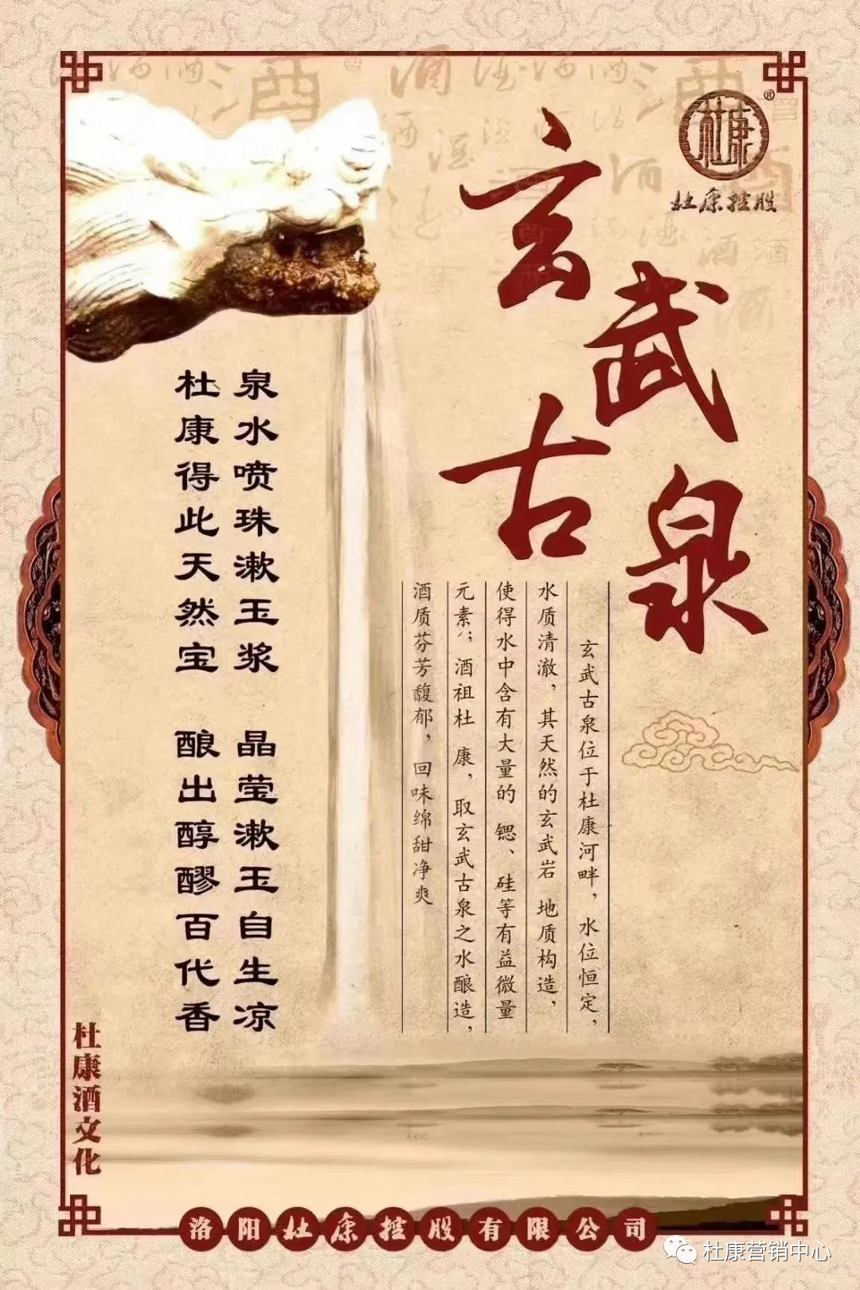 杜康
®
杜康控股
玄武古泉
玄武古泉位于杜康河畔，水位恒定，
水质清澈，其天然的玄武岩 地质构造，
使得水中含有大量的 锶、硅等有益微量
元素；酒祖杜 康，取玄武古泉之水酿造，
酒质芬芳馥郁，回味绵甜净爽
泉水喷珠漱玉浆 晶莹漱玉自生凉
杜康得此天然宝 酿出醇醪百代香
杜康酒文化
洛阳杜康控股有限公司
杜康营销中心